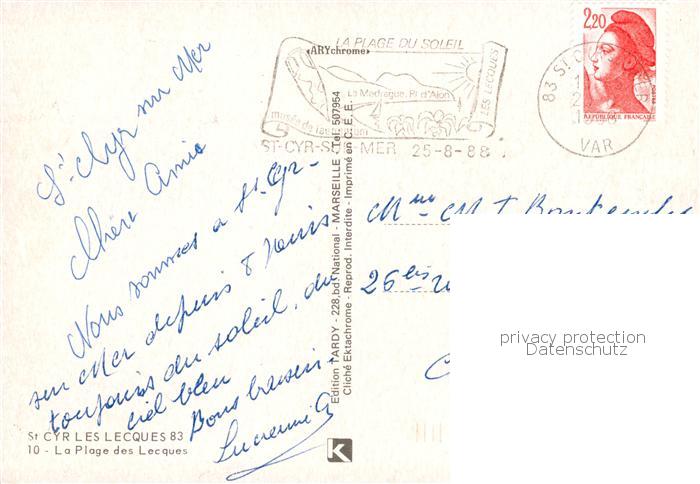 St Cyr sur Mer
Chère Amie
Nous sommes à St. Cyr-
sur Mer depuis 8 jours
toujours du soleil, du
ciel bleu
Bons baisers
St CYR LES LECQUES 83
10 - La Plage des Lecques
Edition TARDY - 228, bd. National - MARSEILLE - Tel. 507954
Cliché Ektachrome - Reprod. Interdite - Imprimé en C.E.E.
K
ARYchrome
LA PLAGE DU SOLEIL
La Madrague, Pt d'Alon
LES LECQUES
musée de
ST-CYR-SUR-MER 25-8-88
83 St CYR
VAR
2,20
REPUBLIQUE FRANÇAISE
Mme
26 bis
privacy protection
Datenschutz